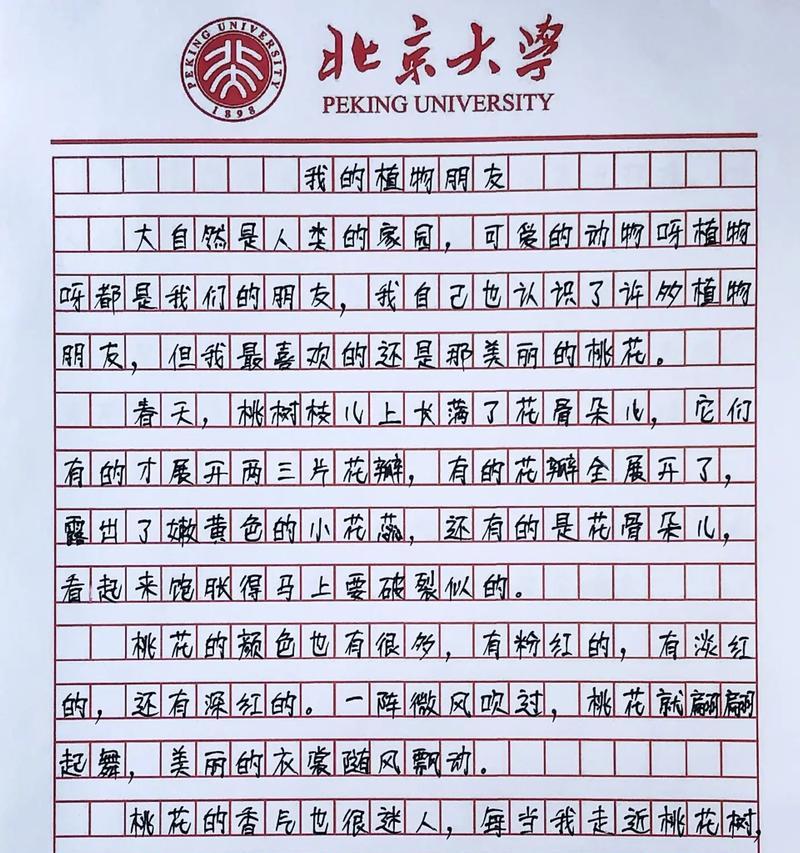 PEKING UNIVERSITY
1898
北京大学
PEKING UNIVERSITY
我的植物朋友
大自然是人类的家园，可爱的动物呀植物
呀都是我们的朋友，我自己也认识了许多植物
朋友，但我最喜欢的还是那美丽的桃花。
春天，桃树枝儿上长落了花骨朵儿，它们
有的才展开两三片花瓣，有的花瓣全展开了，
露出了嫩黄色的小花蕊，还有的是花骨朵儿，
看起来饱胀得马上要破裂似的。
桃花的颜色也有很多，有粉红的，有淡红
的，还有深红的。一阵微风吹过，桃花就翩翩
起舞，美丽的衣裳随风飘动。
桃花的香气也很迷人，每当我走近桃花树，